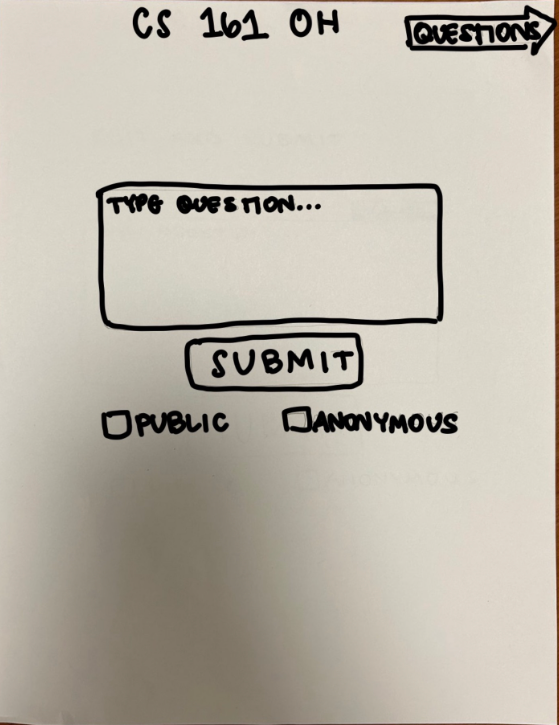 CS 161 OH
QUESTIONS
TYPE QUESTION...
SUBMIT
PUBLIC
ANONYMOUS